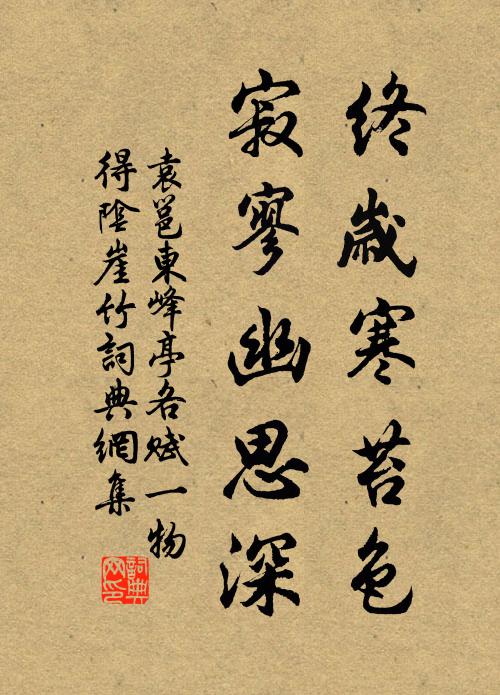 終歲寒苔色
寂寥幽思深
袁邕東峰亭各賦一物
得陰崖竹詞典網集
詞典网印